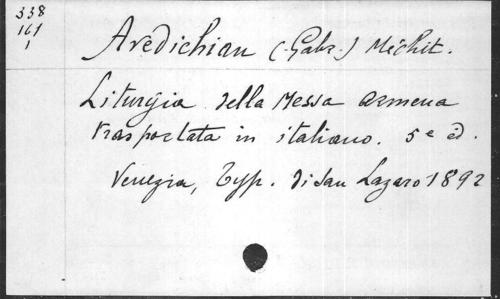 338
161
1
Avedichian (Gabr.) Méchit.
Liturgia della Messa armena
trasportata in italiano. 5e éd.
Venezia, Typ. di San Lazaro 1892